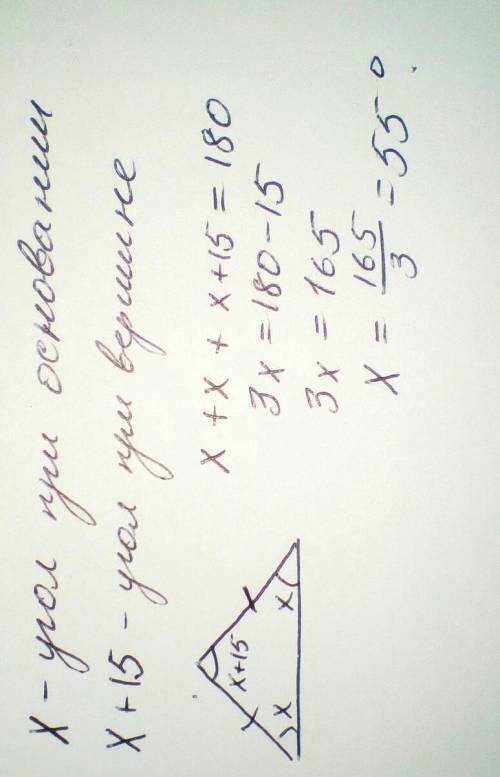 x - угол при основании
x + 15 - угол при вершине
x + x + x + 15 = 180
3x = 180 - 15
3x = 165
x = 165/3 = 55°.
x+15
x
x